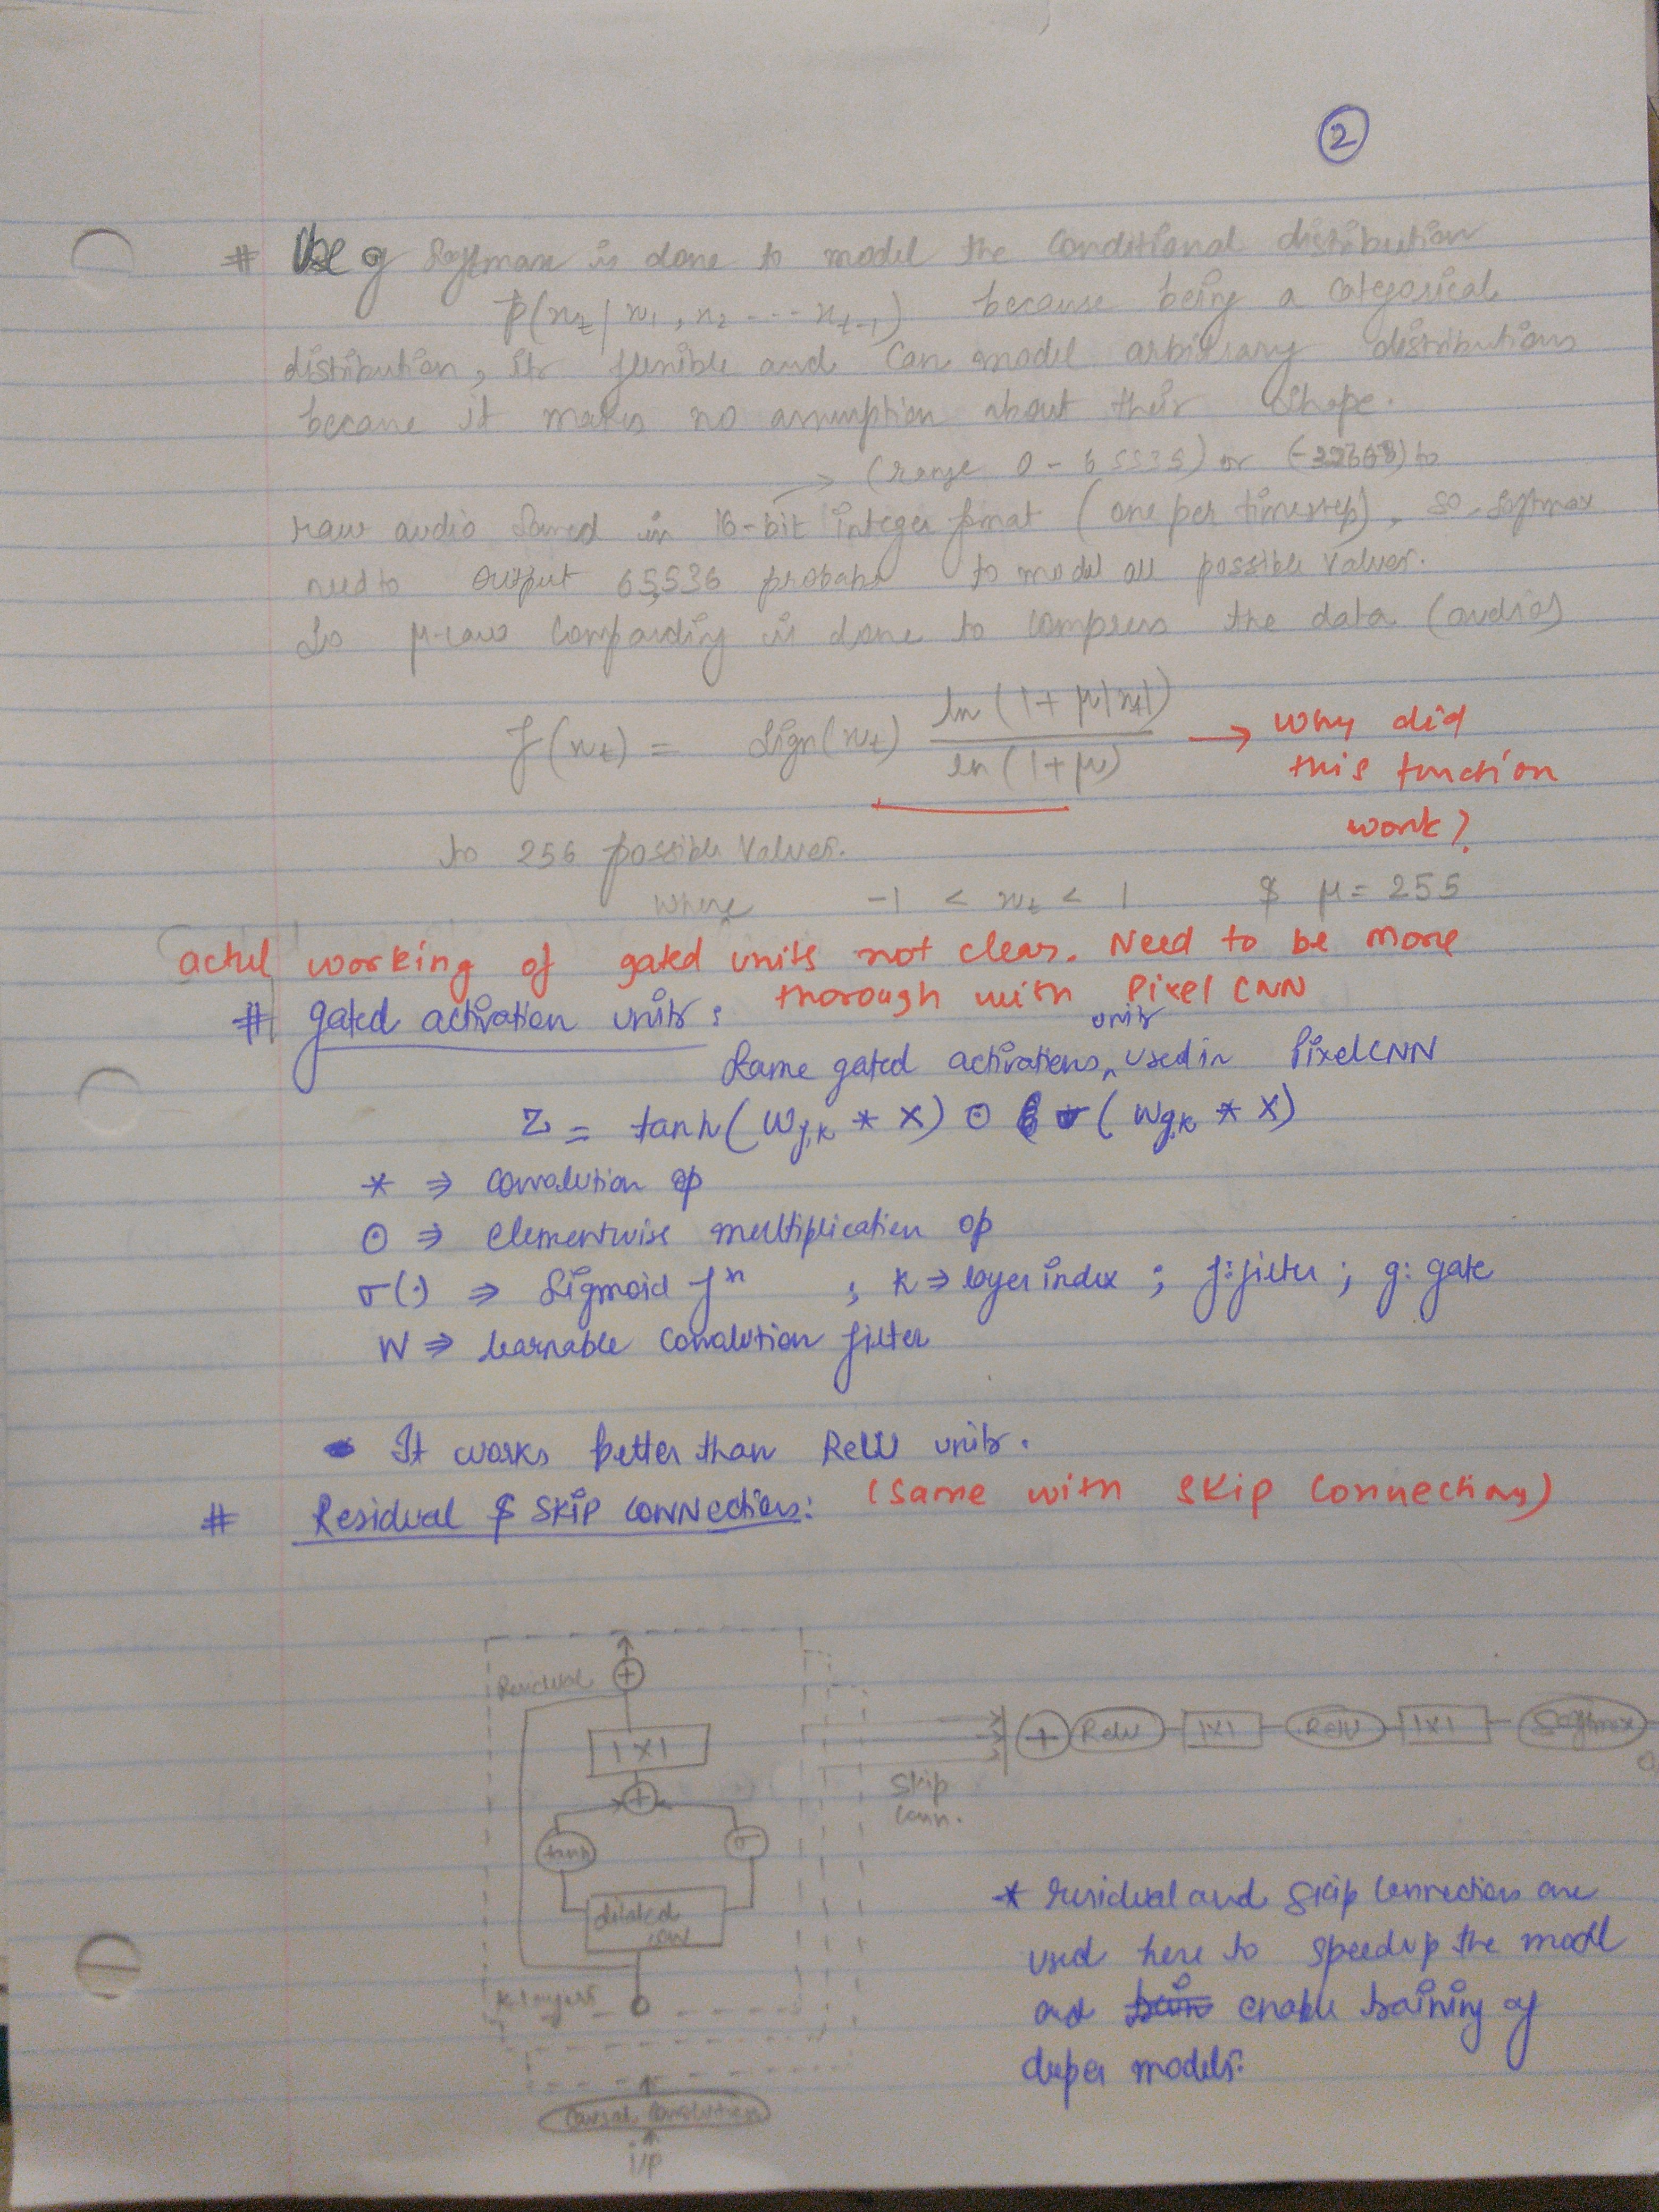 2
# Use of Softmax is done to model the conditional distribution
p(x_t | x_1, x_2 --- x_{t-1}) because being a categorical
distribution, its flexible and can model arbitrary distributions
because it makes no assumption about their shape.
→ (range 0 - 65535) or (-32768) to
raw audio saved in 16-bit integer format (one per timestep), so softmax
need to output 65,536 probabs to model all possible values.
So μ-law companding is done to compress the data (audio)
f(x_t) = Sign(x_t) ln(1 + μ|x_t|) / ln(1+μ) → Why did
this function
work?
to 256 possible values.
where -1 < x_t < 1 & μ = 255
actul working of gated units not clear. Need to be more
thorough with Pixel CNN
# gated activation units:
Same gated activations units used in PixelCNN
Z = tanh(W_{f,k} * X) ⊙ σ(W_{g,k} * X)
* ⇒ convolution op
⊙ ⇒ elementwise multiplication op
σ(·) ⇒ Sigmoid fⁿ ; K ⇒ layer index ; f: filter ; g: gate
W ⇒ learnable convolution filter
It works better than ReLU units.
# Residual & SKIP CONNections: (Same with skip connections)
Residual +
1X1
+
tanh σ
dilated
conv
K layers
Causal Convolution
i/p
Skip
conn.
+ ReLU 1X1 ReLU 1X1 Softmax
* residual and skip connections are
used here to speedup the model
and train enable training of
deeper models.